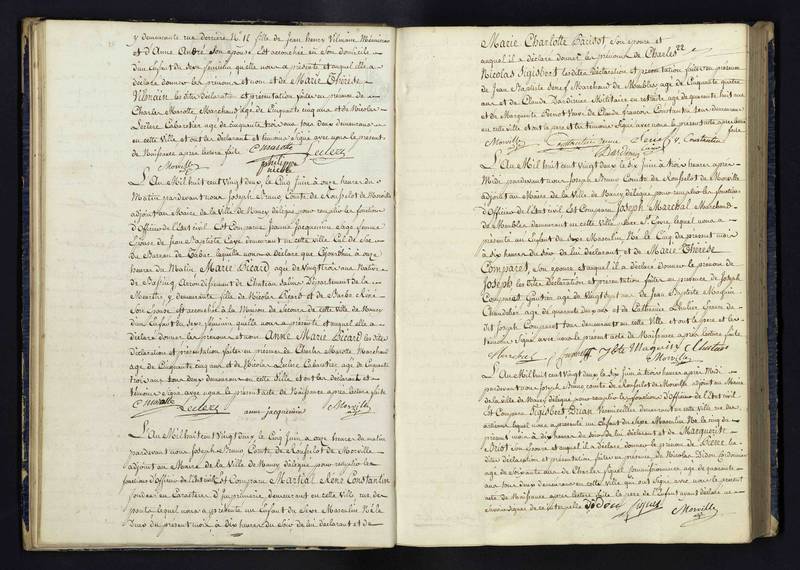 y demeurante rue derrière N° 12 fille de Jean Henry Vilmain
et d'Anne André son épouse Est accouchée en son domicile
d'un Enfant du sexe féminin qu'elle nous a présenté et auquel elle a
déclaré donner les prénoms et nom de Marie Thérèse
Vilmain les dites déclaration et présentation faites en présence de
Charles Marotte Marchand âgé de Cinquante cinq ans et de Nicolas
Leclerc Cabaretier agé de cinquante trois ans tous deux demeurant
en cette ville et ont les déclarant et témoins signé avec nous le présent
de Naissance après lecture faite
C marotte Leclerc
Morville
philippe
L'An Mil huit cent Vingt deux, le Cinq Juin à onze heures du
Matin pardevant nous Joseph Bruno Comte de Rousselot de Morville
adjoint au Maire de la Ville de Nancy délégué pour remplir les fonctions
d'Officier de l'État civil Est Comparue Jeanne Jacquemin Sage femme
Epouse de Jean Baptiste demeurant en cette ville
du Bureau de Tabac laquelle nous a déclaré que
heures du Matin Marie Picard agée de Vingt trois ans Native
de Arrondissement de Chateau Salins Département de la
Meurthe, y demeurante fille de Nicolas Picard et de Barbe
son épouse est accouchée à la Maison de Secours de cette ville de Nancy
d'un Enfant du Sexe féminin qu'elle nous a présenté et auquel elle a
déclaré donner les prénoms et nom Anne Marie Picard les dites
déclaration et présentation faites en présence de Charles Marotte Marchand
agé de Cinquante Cinq ans et de Nicolas Leclerc Cabaretier agé de Cinquante
trois ans tous deux demeurant en cette Ville et ont les déclarant et
témoins signé avec nous le présent acte de Naissance après lecture faite
C marotte Leclerc Morville
anne jacquemin
L'An Mil huit cent Vingt deux, le Cinq Juin à onze heures du matin
pardevant nous Joseph Bruno Comte de Rousselot de Morville
adjoint au Maire de la Ville de Nancy délégué pour remplir les
fonctions d'Officier de l'État civil Est Comparu Martial René Constantin
fondeur en Caractères d'Imprimerie, demeurant en cette ville rue des
ponts lequel nous a présenté un Enfant du Sexe Masculin Né le
Deux du présent mois à dix heures du soir de lui déclarant et de
Marie Charlotte Parisot Son épouse et
auquel il a déclaré donner les prénoms de Charles
Nicolas Sigisbert les dites Déclaration et présentation faites en présence
de Jean Baptiste Marchand de Meubles agé de Cinquante quatre
ans et de Claude Militaire en retraite agé de quarante huit ans
et de Marguerite Veuve de Claude François Constantin tous demeurant
en cette ville et ont le père et les témoins Signé avec nous le présent acte après lecture
faite
Morville Constantin
L'An Mil huit cent Vingt deux le dix Juin à trois heures après
Midi pardevant nous Joseph Bruno Comte de Rousselot de Morville
adjoint au Maire de la Ville de Nancy délégué pour remplir les fonctions
d'Officier de l'État civil Est Comparu Joseph Marchal Marchand
de Meubles demeurant en cette Ville Rue lequel nous a
présenté un Enfant du Sexe Masculin Né le Cinq du présent mois
à dix heures du Soir de lui déclarant et de Marie Thérèse
Comparet, Son épouse et auquel il a déclaré donner le prénom de
Joseph les dites déclaration et présentation faites en présence de Joseph
Comparet agé de Vingt sept ans de Jean Baptiste Maguin
Chaudelier agé de quarante deux ans et de Catherine
dit Joseph Comparet tous demeurant en cette Ville et ont le père et les
témoins Signé avec nous le présent acte de Naissance après lecture faite
Maguin
Morville
L'An Mil huit cent Vingt deux le dix Juin à trois heures après Midi
pardevant nous Joseph Bruno comte de Rousselot de Morville adjoint au Maire
de la Ville de Nancy délégué pour remplir les fonctions d'Officier de l'État civil
Est Comparu Sigisbert demeurant en cette Ville rue des
lequel nous a présenté un Enfant du Sexe Masculin Né le cinq du
présent mois à dix heures du soir de lui déclarant et de Marguerite
Son Epouse et auquel il a déclaré donner le prénom de Pierre les
dites déclaration et présentation faites en présence de Nicolas Didon Cordonnier
agé de Soixante ans de Charles Commissionnaire agé de quarante
ans tous deux demeurant en cette Ville qui ont Signé avec nous le présent
acte de Naissance après lecture faite le père de l'Enfant ayant déclaré ne
savoir signer de ce interpellé Didon
Morville